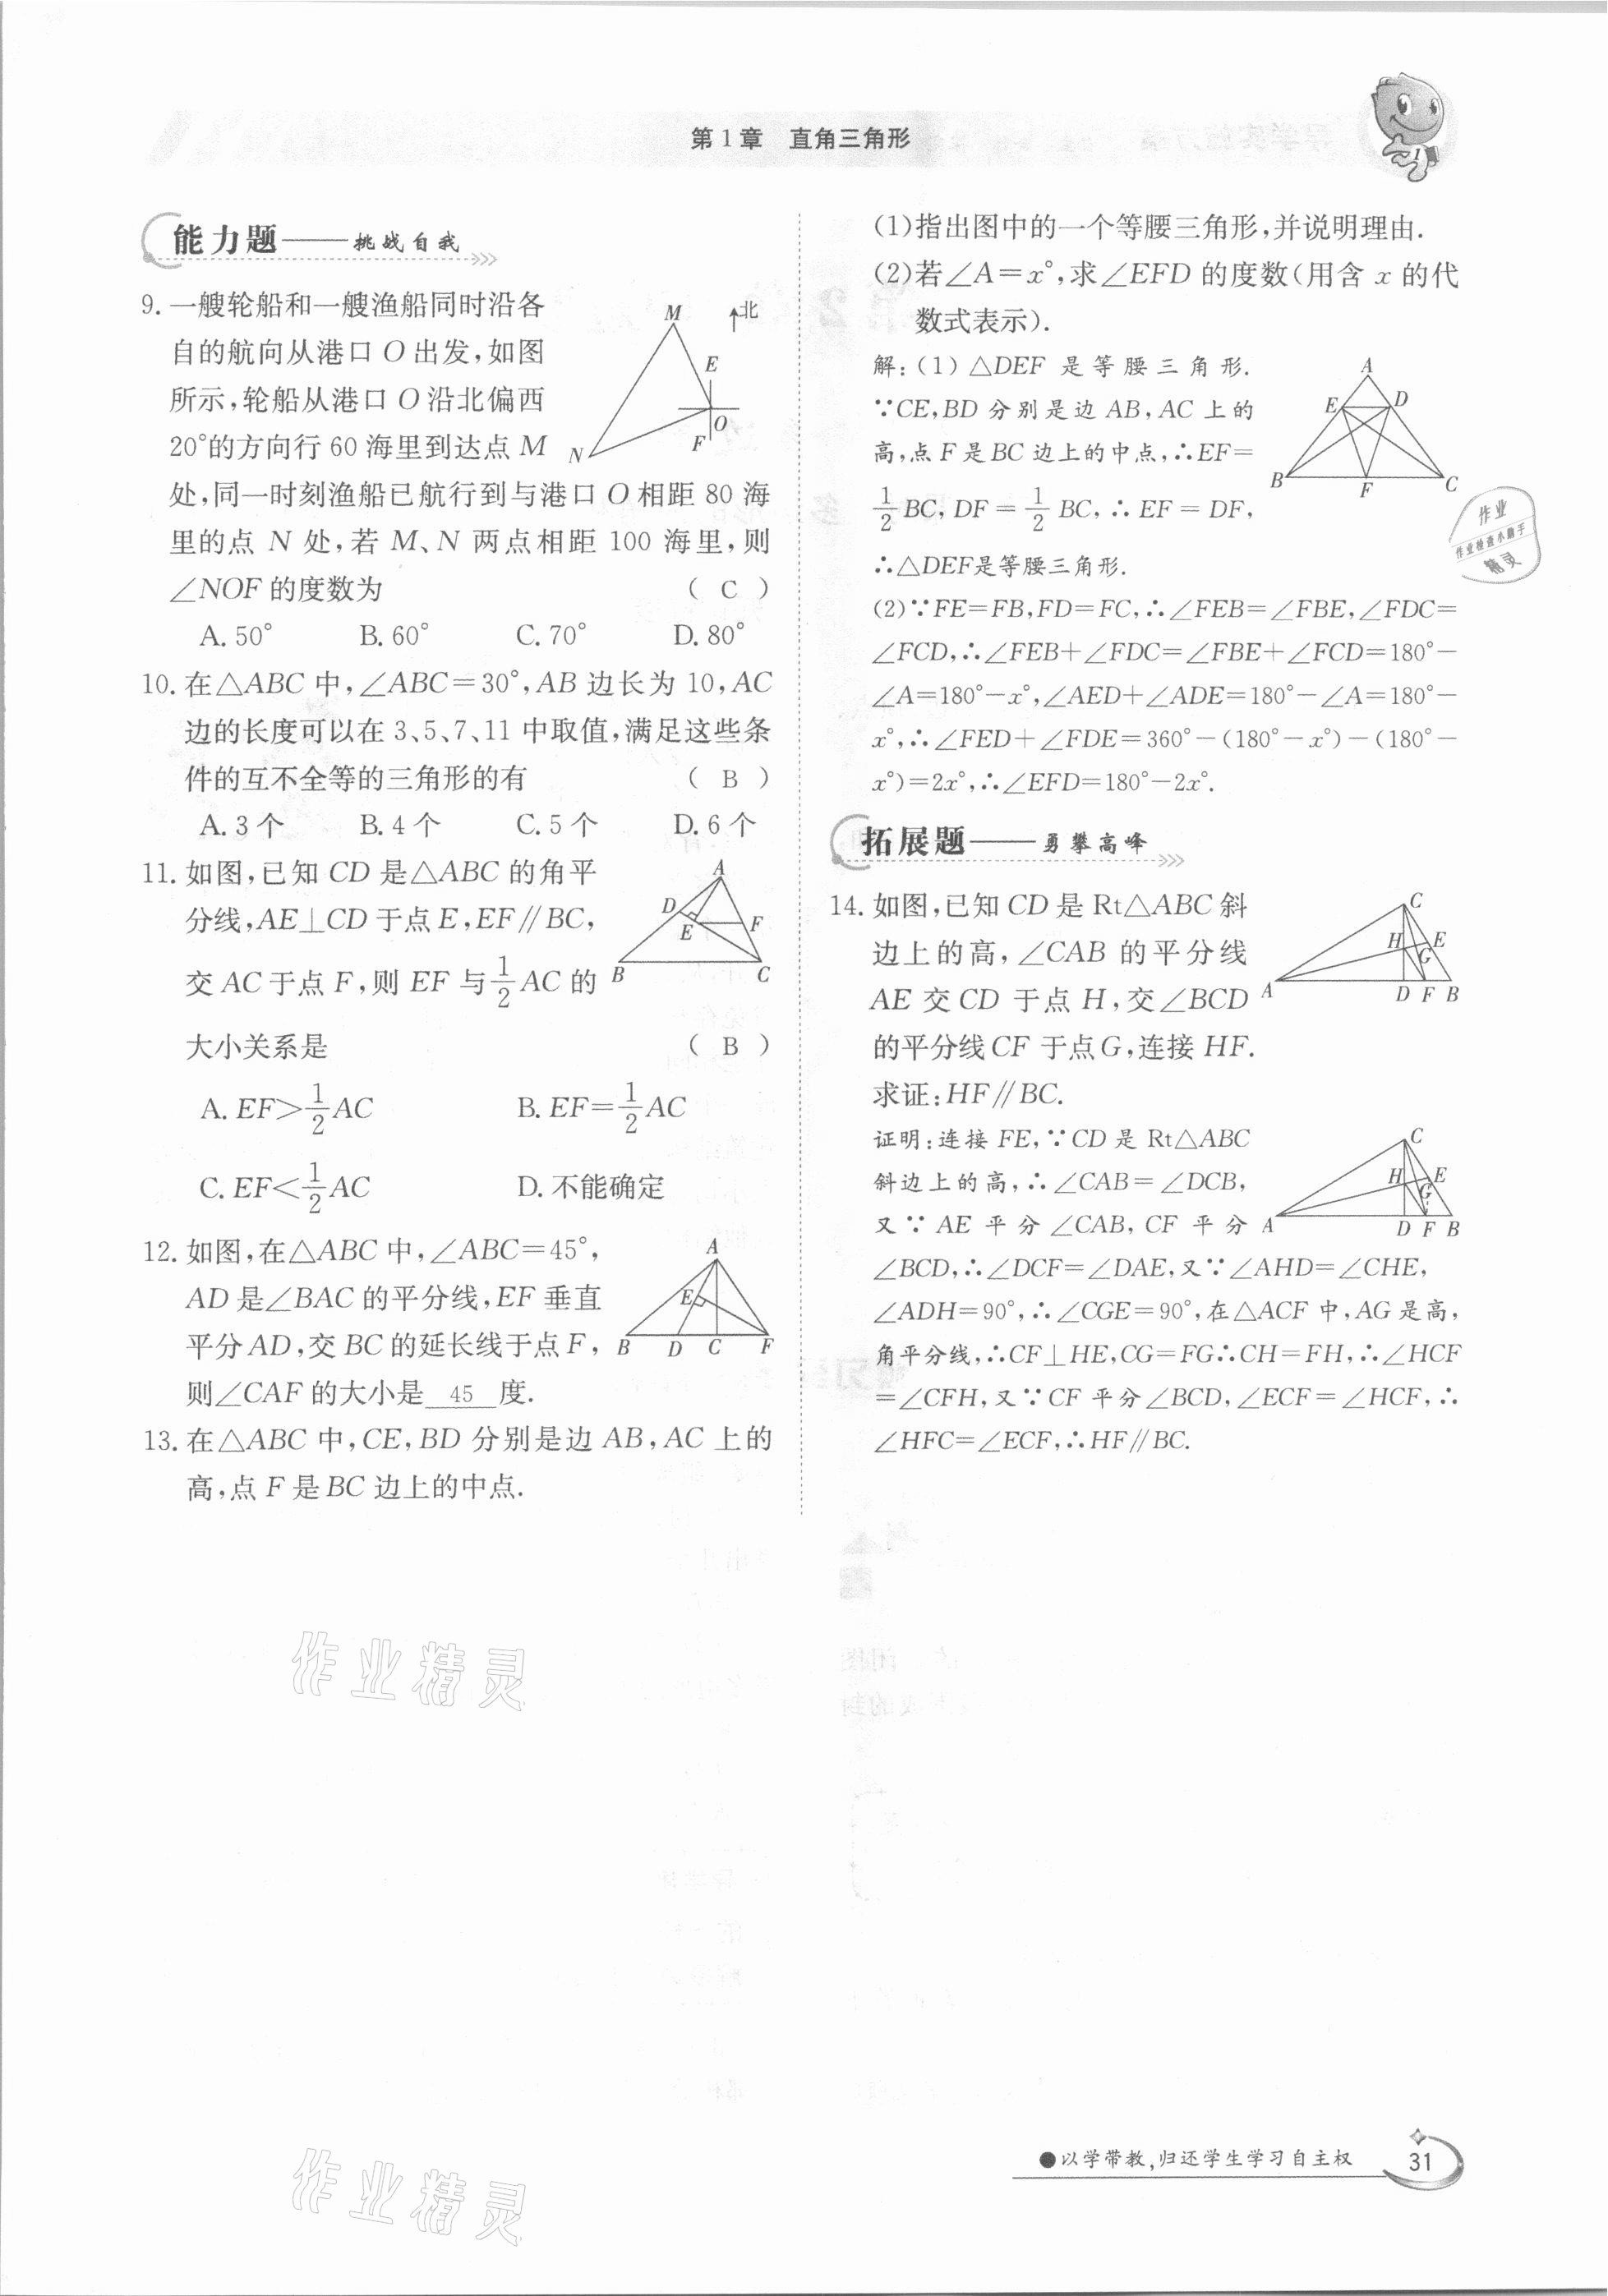 第1章 直角三角形
能力题——挑战自我
9. 一艘轮船和一艘渔船同时沿各
自的航向从港口O出发,如图
所示,轮船从港口O沿北偏西
20°的方向行60海里到达点M
处,同一时刻渔船已航行到与港口O相距80海
里的点N处,若M、N两点相距100海里,则
∠NOF的度数为 ( C )
A. 50° B. 60° C. 70° D. 80°
M 北
E
O
F
N
10. 在△ABC中,∠ABC=30°,AB边长为10,AC
边的长度可以在3、5、7、11中取值,满足这些条
件的互不全等的三角形的有 ( B )
A. 3个 B. 4个 C. 5个 D. 6个
11. 如图,已知CD是△ABC的角平
分线,AE⊥CD于点E,EF∥BC,
交AC于点F,则EF与1/2AC的
大小关系是 ( B )
A. EF>1/2AC B. EF=1/2AC
C. EF<1/2AC D. 不能确定
A
D
E F
B C
12. 如图,在△ABC中,∠ABC=45°,
AD是∠BAC的平分线,EF垂直
平分AD,交BC的延长线于点F,
则∠CAF的大小是 45 度.
A
E
B D C F
13. 在△ABC中,CE,BD分别是边AB,AC上的
高,点F是BC边上的中点.
(1)指出图中的一个等腰三角形,并说明理由.
(2)若∠A=x°,求∠EFD的度数(用含x的代
数式表示).
解:(1)△DEF是等腰三角形.
∵CE,BD分别是边AB,AC上的
高,点F是BC边上的中点,∴EF=
1/2BC,DF=1/2BC,∴EF=DF,
∴△DEF是等腰三角形.
A
E D
B F C
(2)∵FE=FB,FD=FC,∴∠FEB=∠FBE,∠FDC=
∠FCD,∴∠FEB+∠FDC=∠FBE+∠FCD=180°-
∠A=180°-x°,∠AED+∠ADE=180°-∠A=180°-
x°,∴∠FED+∠FDE=360°-(180°-x°)-(180°-
x°)=2x°,∴∠EFD=180°-2x°.
拓展题——勇攀高峰
14. 如图,已知CD是Rt△ABC斜
边上的高,∠CAB的平分线
AE交CD于点H,交∠BCD
的平分线CF于点G,连接HF.
求证:HF∥BC.
C
H E
G
A D F B
证明:连接FE,∵CD是Rt△ABC
斜边上的高,∴∠CAB=∠DCB,
又∵AE平分∠CAB,CF平分
∠BCD,∴∠DCF=∠DAE,又∵∠AHD=∠CHE,
∠ADH=90°,∴∠CGE=90°,在△ACF中,AG是高,
角平分线,∴CF⊥HE,CG=FG∴CH=FH,∴∠HCF
=∠CFH,又∵CF平分∠BCD,∠ECF=∠HCF,∴
∠HFC=∠ECF,∴HF∥BC.
C
H E
G
A D F B
作业
作业检查小助手
精灵
作业精灵
作业精灵
●以学带教,归还学生学习自主权
31